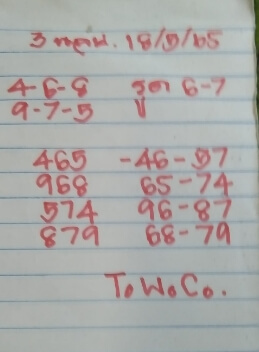 3 กลุ่ม. 18/5/65
4-6-8 รูด 6-7
9-7-5
465 -46-57
968 65-74
574 96-87
879 68-79
T.W.Co.